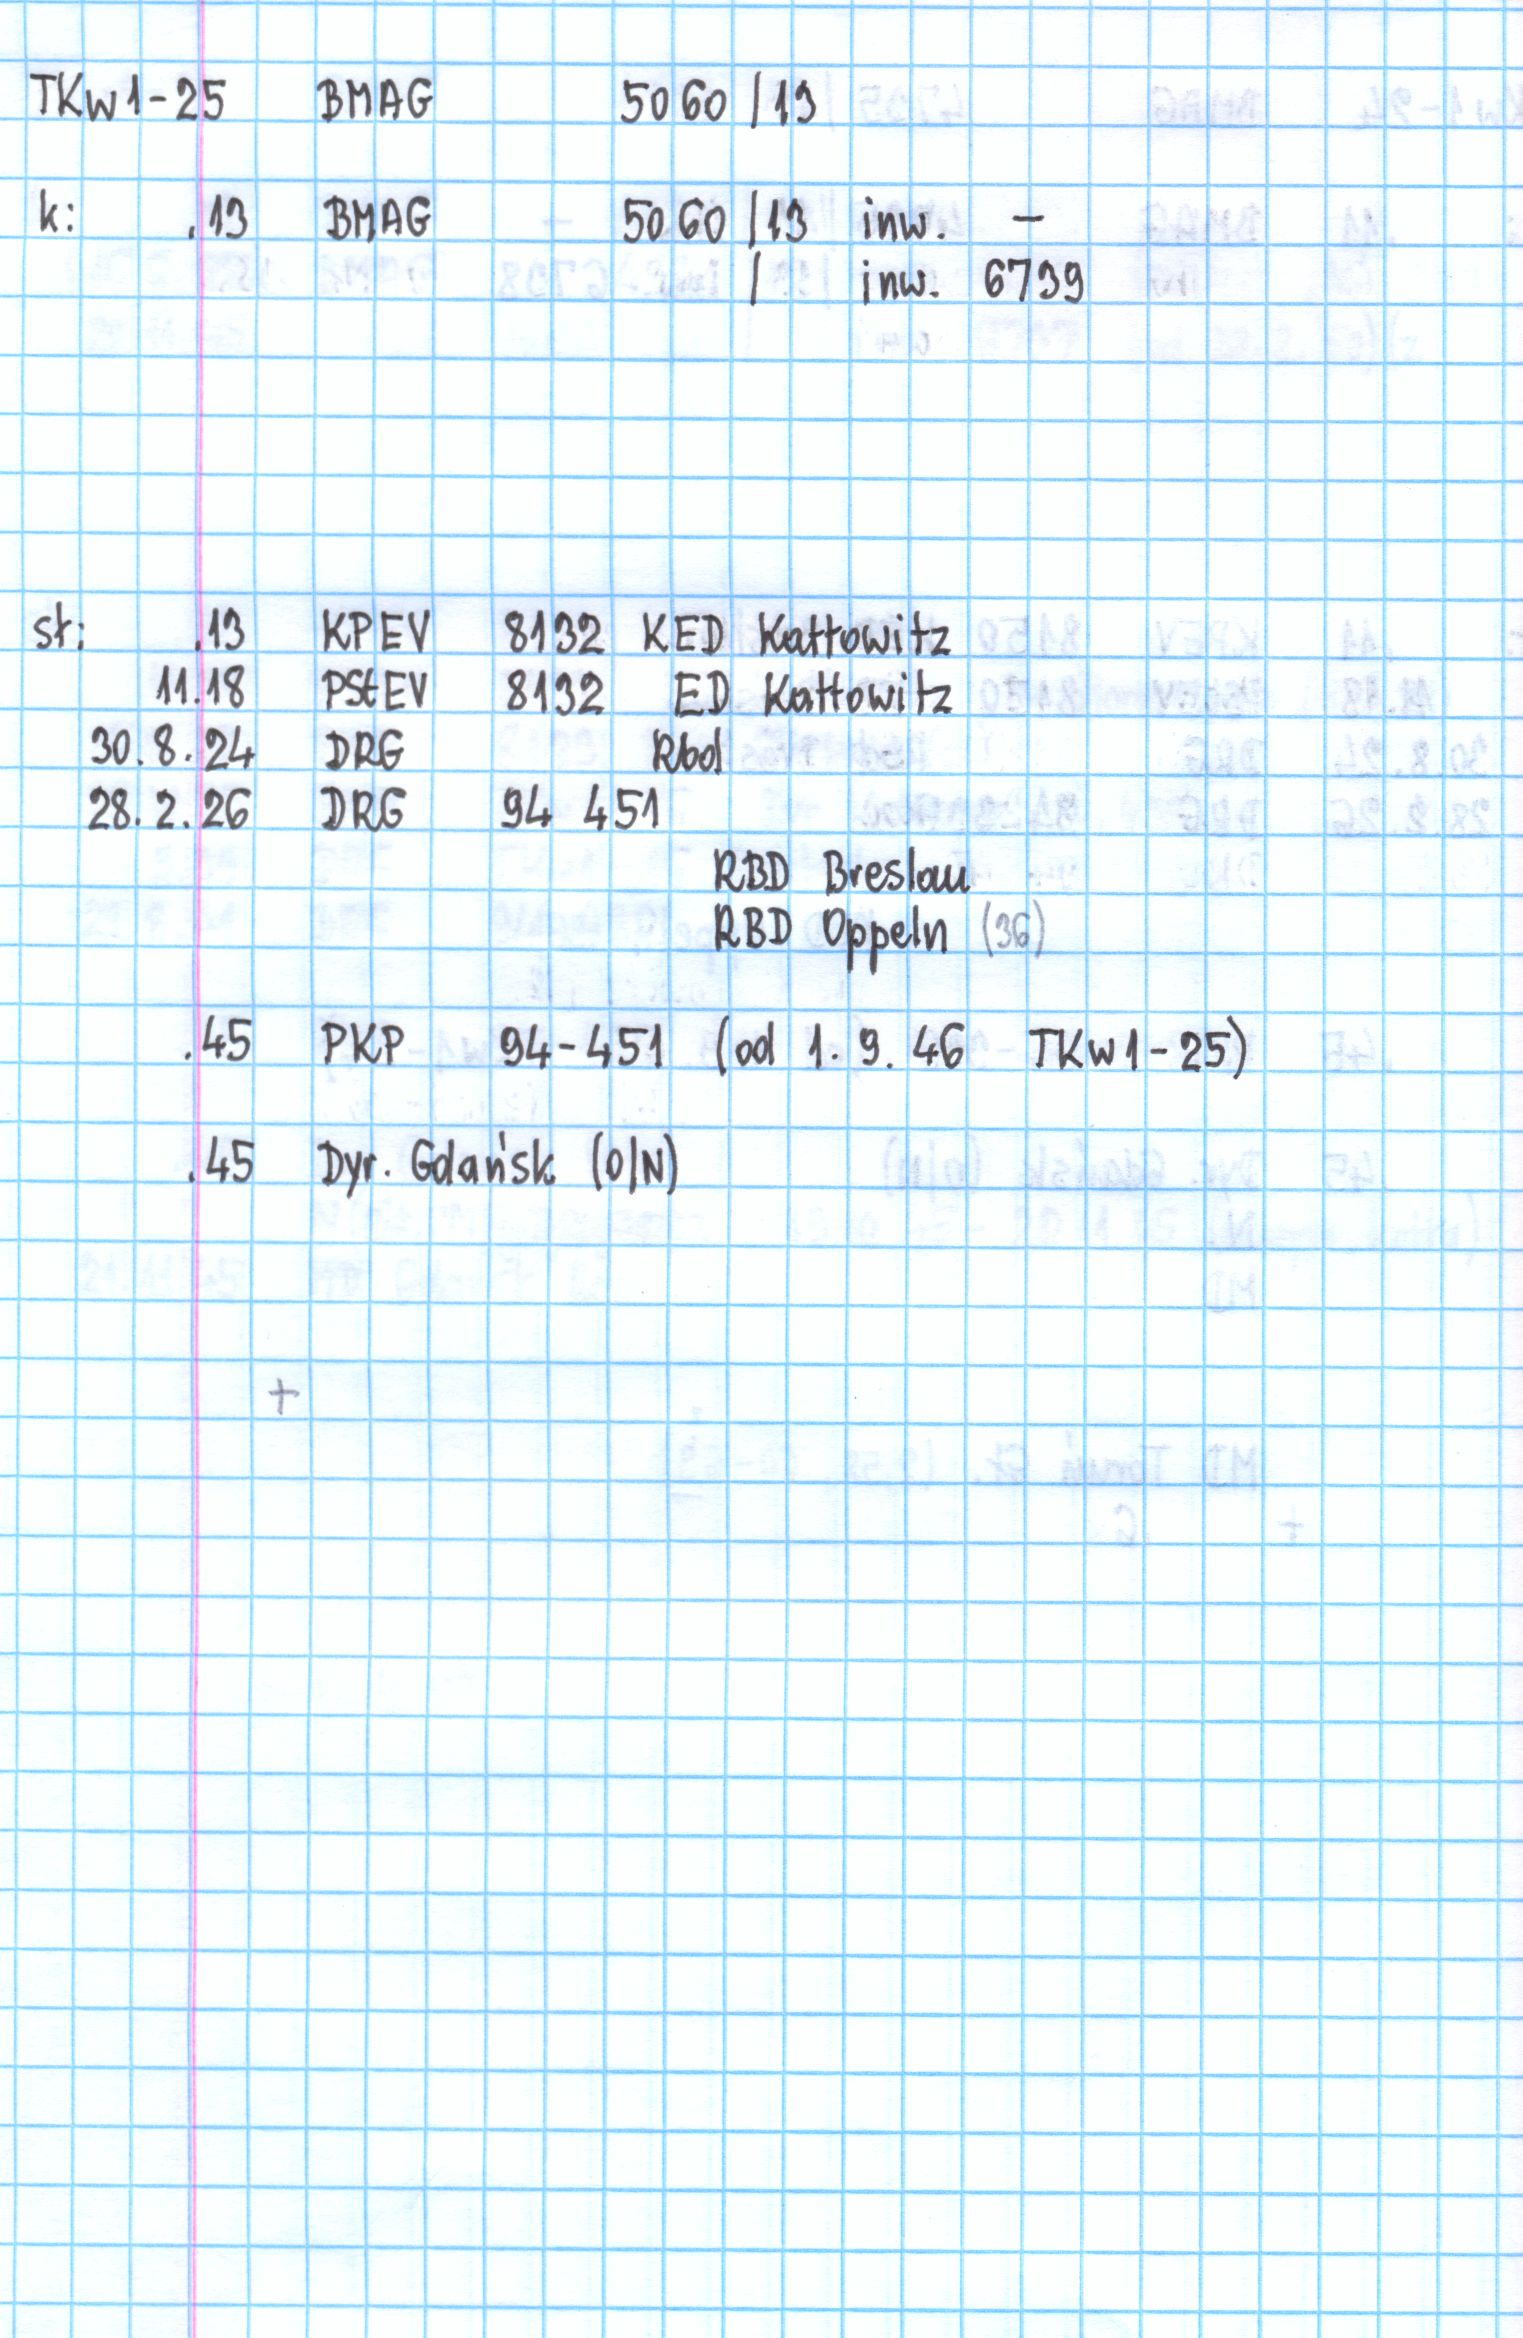 TKw1-25 BMAG 5060 /13
k: .13 BMAG 5060 /13 inw. -
/ inw. 6739
st: .13 KPEV 8132 KED Kattowitz
11.18 PStEV 8132 ED Kattowitz
30.8.24 DRG Rbd
28.2.26 DRG 94 451
RBD Breslau
RBD Oppeln (36)
.45 PKP 94-451 (od 1.9.46 TKw1-25)
.45 Dyr. Gdańsk (O/N)
+